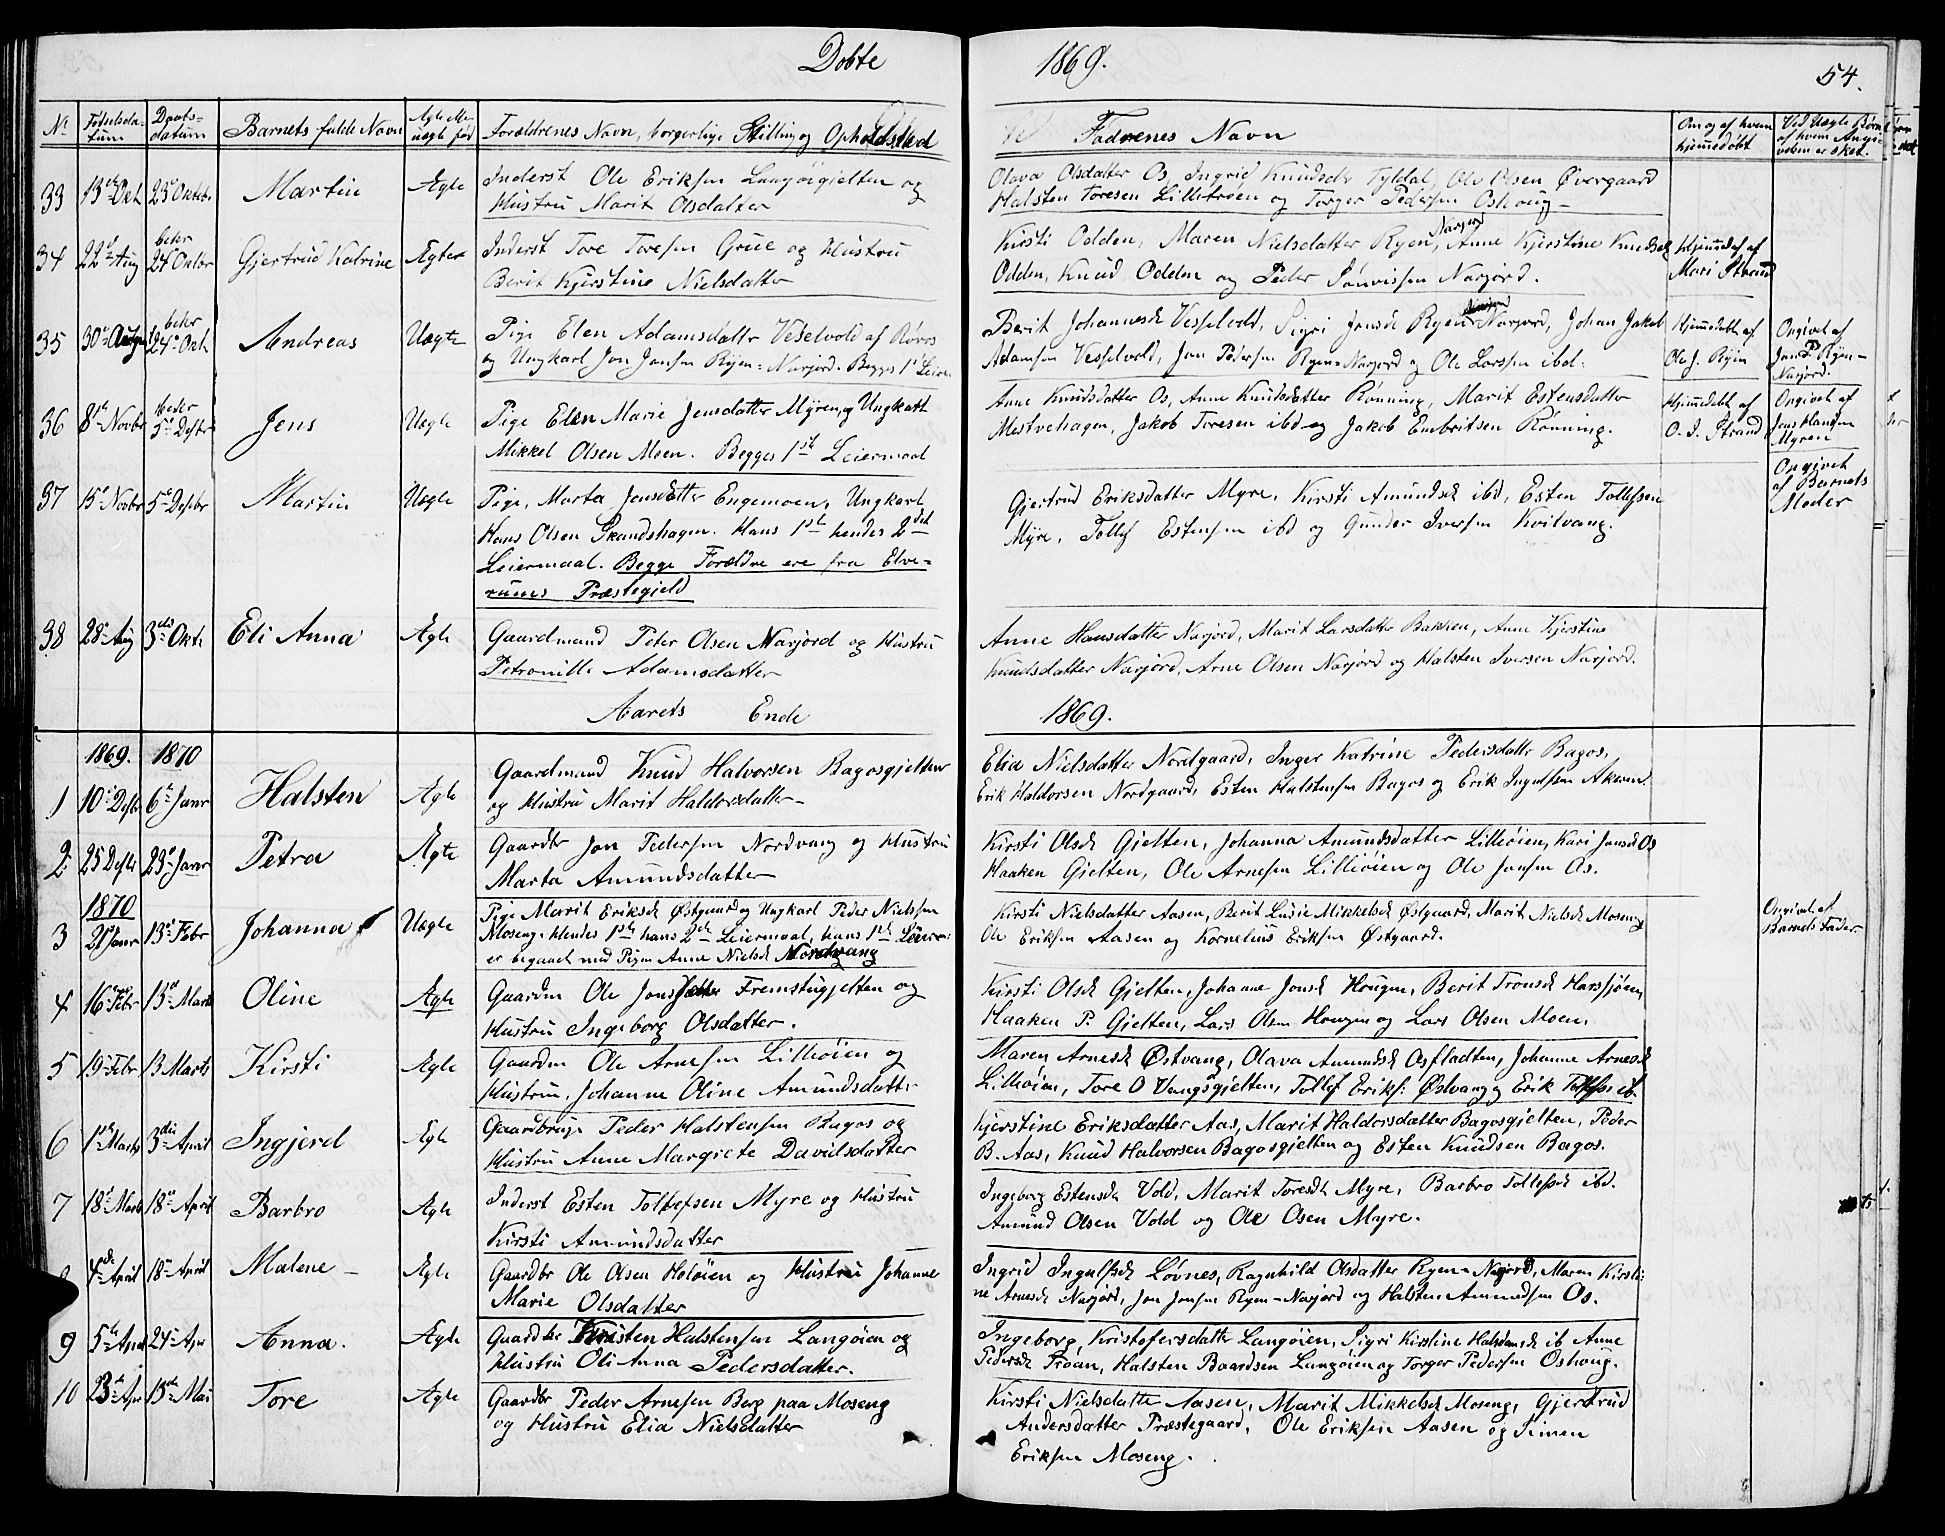 Døbte 1869. 54.
No Fødselsdatum Daabsdatum Barnets fulde Navn Ægte eller uægte født Forældrenes Navn, borgerlige Stilling og Opholdssted Faddrenes Navn Om og af hvem hjemmedøbt Ved Uægte Børn af hvem Angivelsen er sket.
33 13de Okt 23de Oktobr Martin Ægte Inderst Ole Eriksen Langøigjelten og
Hustru Marit Olsdatter
Olava Olsdatter Os, Ingrid Knudsdr Tyldal, Ole Olsen Øvergaard
Halsten Toresen Lillebrøen og Torger Pedersen Oshoug
34 22de Aug bekr 24de Oktbr Gjertrud Katrine Ægte Inderst Tore Toresen Grue og Hustru
Berit Kjerstine Nielsdatter
Kirsti Odden, Maren Nielsdatter Ryen Narjord, Anne Kjerstine Knudsdr
Odden, Knud Odden og Peder Narjord.
Hjemmd af af
Mari Strand
35 30te August bekr 24de Okt Andreas Uægte Pige Elen Adamsdatter Vesselvold af Røros
og Ungkarl Jon Jonsen Ryen-Narjord. Begges 1ste Leierm.
Berit Johannesdr Vesselvold, Sigri Jonsdr Ryen Narjord, Johan Jakob
Adamsen Vesselvold, Jon Pedersen Ryen-Narjord og Ole Larsen ibd.
Hjemmedøbt af
Ole J. Ryen
Ongivet af
Jon P. Ryen-
Narjord.
36 8de Novbr 5te Desbr Jens Uægte Pige Elen Marie Jensdatter Myren, og Ungkarl
Mikkel Olsen Moen. Begges 1ste Leiermaal
Anne Knudsdatter Os, Anne Knudsdatter Rønning, Marit Estensdatter
Mestvehagen, Jakob Toresen ibd og Jakob Embritsen Rønning.
Hjemmedøbt af
O. J. Strand
Ongivet af
Jens Hansen
Myren
37 15de Novbr 5te Desbr Martin Uægte Pige, Marta Jonsdatter Engemoen, Ungkarl
Hans Olsen Strandshagen. Hans 1ste hendes 2det
Leiermaal. Begge Forældre ere fra Elve-
rums Præstegjeld
Gjertrud Eriksdatter Myre, Kirsti Amundsdr ibd, Esten Tollefsen
Myre, Tollef Estensen ibd og Gunder Iversen Kvilvang.
Ongivet
af Barnets
Moder
38 28de Aug 3die Oktr Eli Anna Ægte Gaardmand Peter Olsen Narjord og Hustru
Petronille Adamsdatter
Anne Hansdatter Narjord, Marit Larsdatter Bakken, Anne Kjerstine
Knudsdatter Narjord, Arne Olsen Narjord og Halsten Iversen Narjord.
Aarets Ende 1869.
1869. 1870
1 10de Desbr 6te Janr Halsten Ægte Gaardmand Knud Halvorsen Bagosgjelten
og Hustru Marit Haldorsdatter
Elia Nielsdatter Nordgaard, Inger Katrine Pedersdatter Bagos,
Erik Haldorsen Nordgaard, Esten Halstensen Bagos og Erik Ingulfsen Akeren
2 25 Desbr 23de Janr Petra Ægte Gaardbr Jon Pedersen Nordvang og Hustru
Marta Amundsdatter
Kirsti Olsdr Gjelten, Johanna Amundsdatter Lilleøien, Kari Jonsdr Os
Haaken Gjelten, Ole Arnesen Lilleøien og Ole Jonsen Os.
1870
3 21de Janr 13de Febr Johanna Uægte Pige Marit Eriksdr Østgaard og Ungkarl Peder Nielsen
Moseng. Hendes 1ste hans 2det Leiermaal, hans 1ste Leierm.
er begaaet med Pigen Anne Nielsdr Nordvang
Kirsti Nielsdatter Aasen, Berit Lusie Mikkelsdr Østgaard, Marit Nielsdr Moseng
Ole Eriksen Aasen og Kornelius Eriksen Østgaard.
Ongivet af
Barnets Fader
4 16de Febr 13de Marts Oline Ægte Gaardm Ole Jonsen Fremstugjelten og
Hustru Ingeborg Olsdatter.
Kirsti Olsdr Gjelten, Johanne Jonsdr Hougen, Berit Tronsdr Harsjøen,
Haaken P. Gjelten, Lars Olsen Hougen og Lars Olsen Moen.
5 19de Febr 13 Marts Kirsti Ægte Gaardm Ole Arnesen Lilleøien og
Hustru, Johanne Oline Amundsdatter
Maren Arnesdr Østvang, Olava Amundsdr Osfladten, Johanne Arnesdr
Lilleøien, Tore O Vangsgjelten, Tollef Eriks: Østvang og Erik Tollefsen ib.
6 1ste Marts 3die April Ingjerd Ægte Gaardbruger Peder Halstensen Bagos og
Hustru Anne Margrete Davidsdatter
Kjerstine Eriksdatter Aas, Marit Haldorsdatter Bagosgjelten, Peder
B. Aas, Knud Halvorsen Bagosgjelten og Esten Knudsen Bagos.
7 18de Marts 18de April Barbro Ægte Inderst Esten Tollefsen Myre og Hustru
Kirsti Amundsdatter
Ingeborg Estensdr Vold, Marit Toresdr Myre, Barbro Tollefsdr ibd.
Amund Olsen Vold og Ole Olsen Myre.
8 4de April 18de April Malene Ægte Gaardbr Ole Olsen Holøien og Hustru Johanne
Marie Olsdatter
Ingrid Ingulfsdr Løvnes, Ragnhild Olsdatter Ryen-Narjord, Maren Kirsti-
ne Arnesdr Narjord, Jon Jonsen Ryen-Narjord og Halsten Amundsen Os.
9 5te Apr 24de Apr Anna. Ægte Gaardbr Kristen Halstensen Langøien og
Hustru Oli Anna Pedersdatter.
Ingeborg Kristofersdatter Langøien, Sigri Kirstine Halstensdr ib Anne
Pedersdr Troan, Halsten Baardsen Langøien og Torger Pedersen Oshoug.
10 23de Apr 15de Mai Tore Ægte Gaardbr Peder Arnesen Berg paa Moseng
og Hustru Elia Nielsdatter
Kirsti Nielsdatter Aasen, Marit Mikkelsdr Moseng, Gjertrud
Andersdatter Præstegaard, Ole Eriksen Aasen og Simen
Eriksen Moseng.